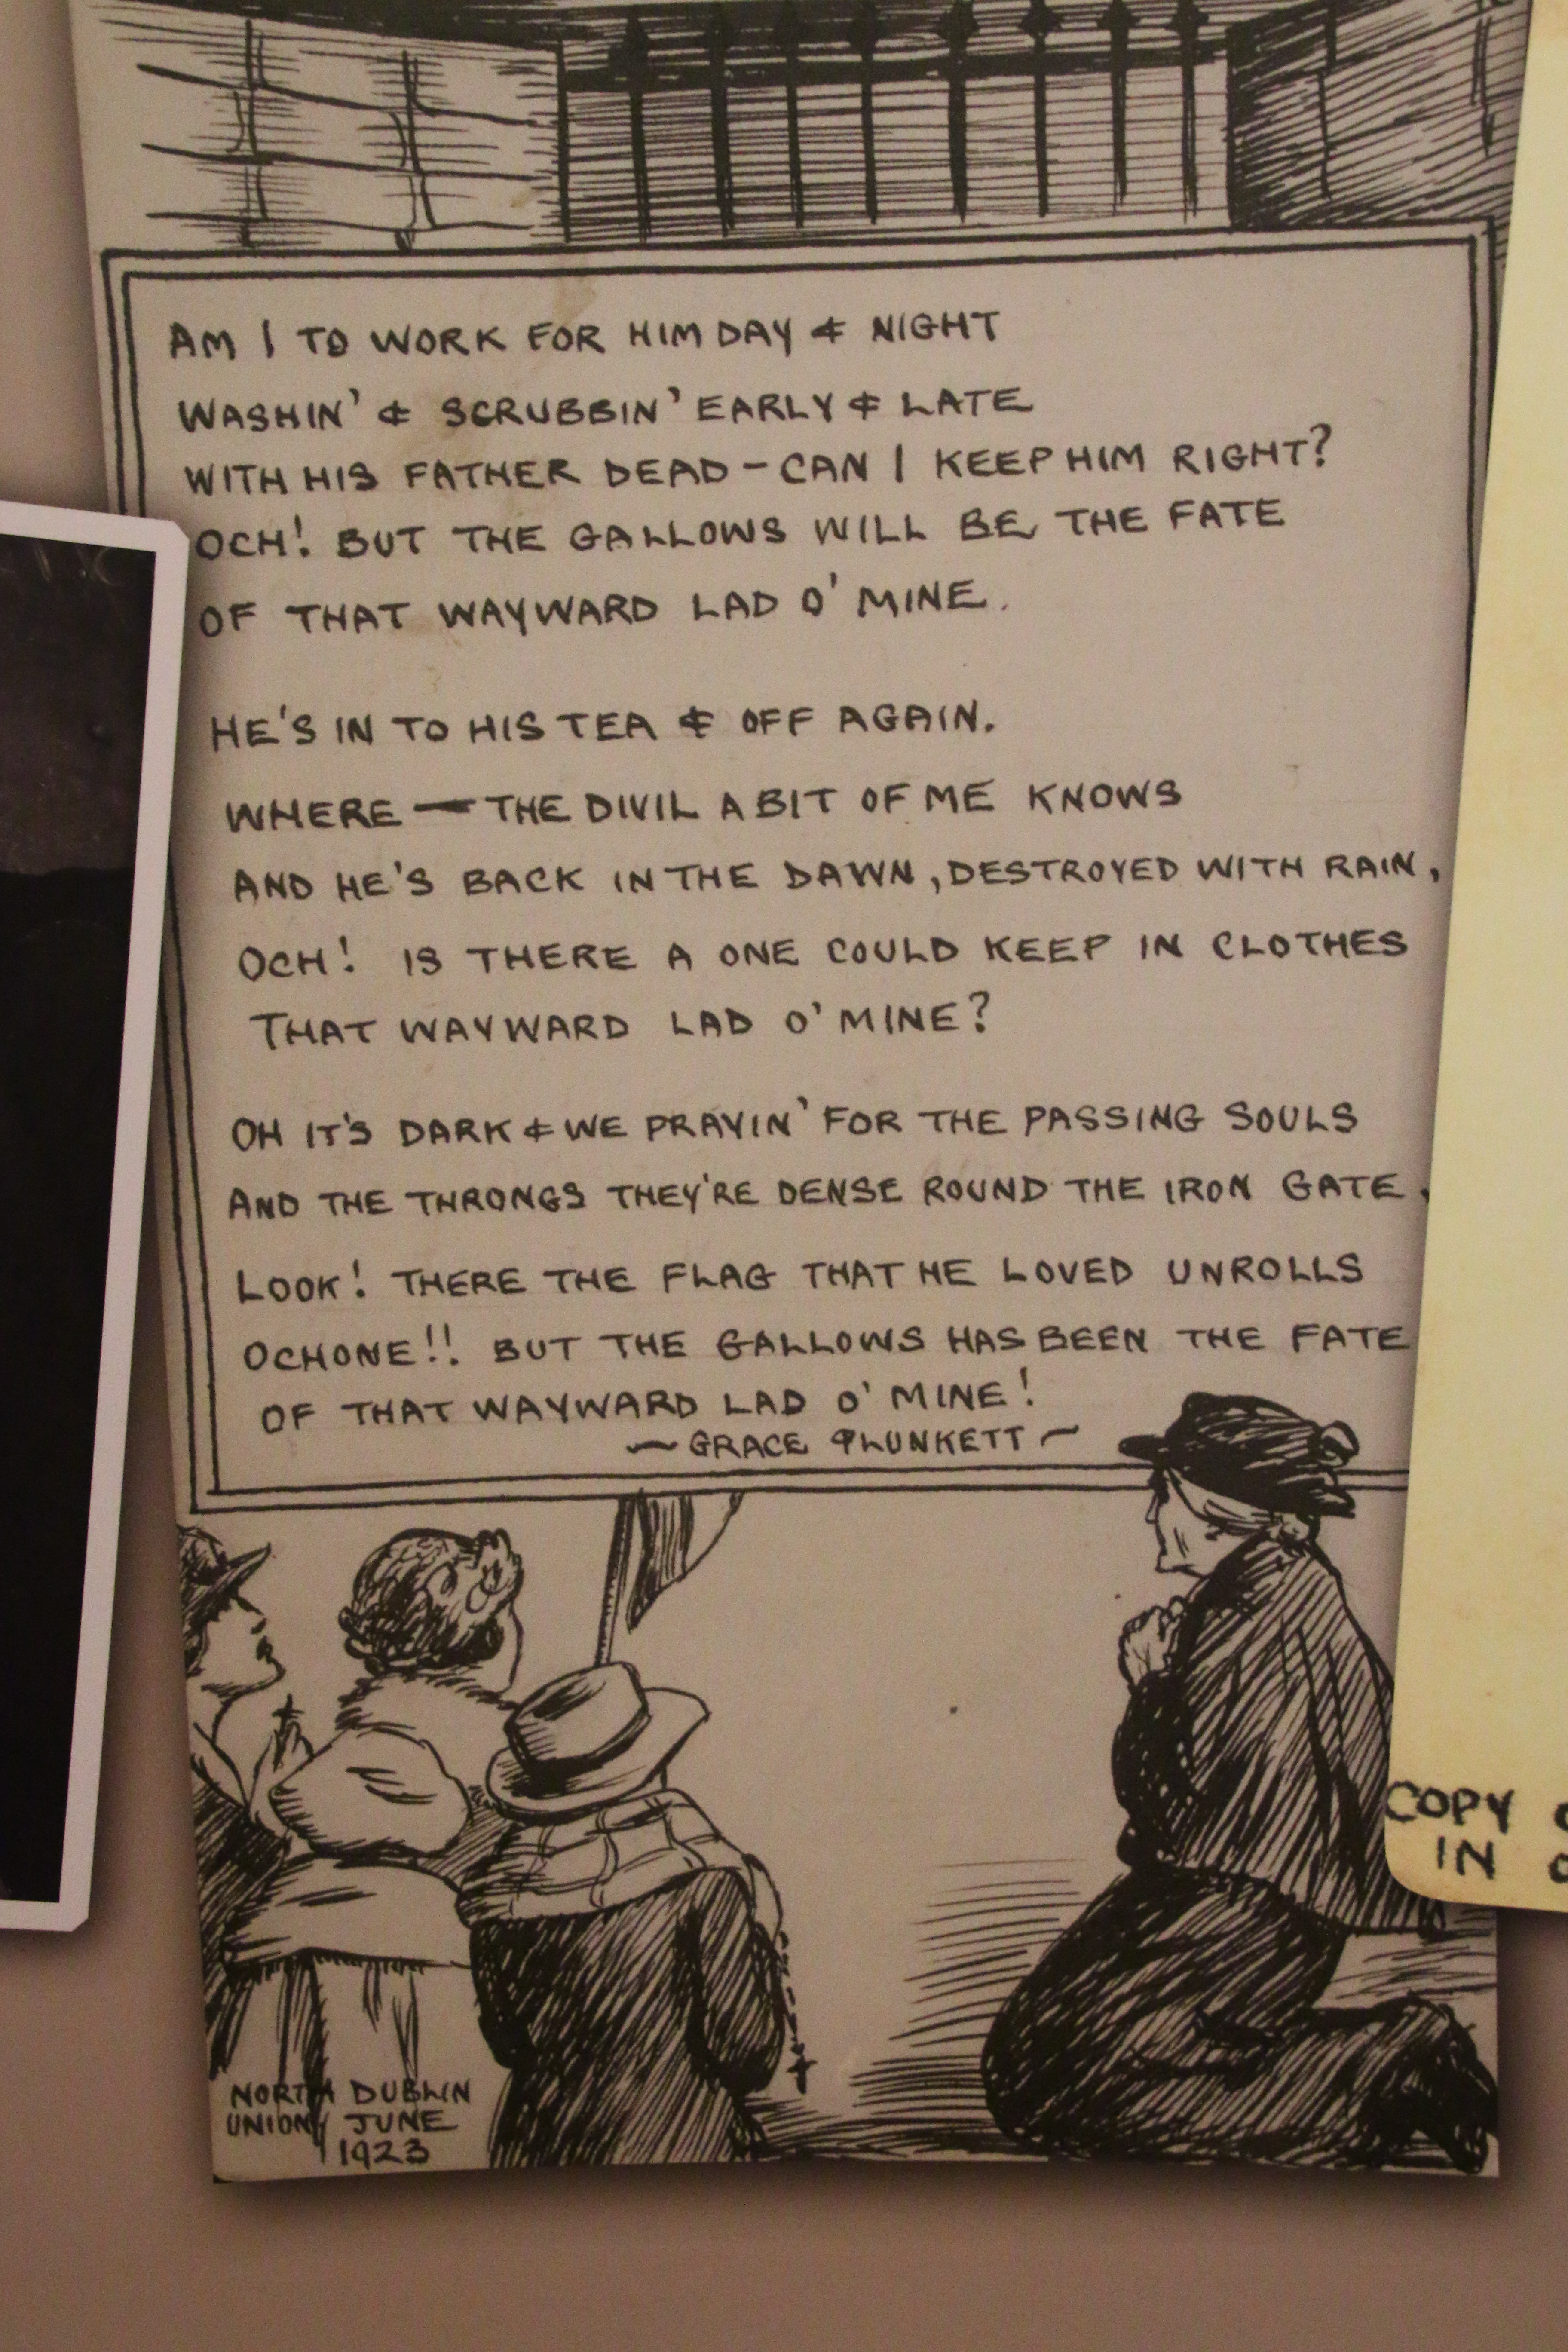 AM I TO WORK FOR HIM DAY & NIGHT
WASHIN' & SCRUBBIN' EARLY & LATE
WITH HIS FATHER DEAD – CAN I KEEP HIM RIGHT?
OCH! BUT THE GALLOWS WILL BE THE FATE
OF THAT WAYWARD LAD O' MINE.
HE'S IN TO HIS TEA & OFF AGAIN.
WHERE — THE DIVIL A BIT OF ME KNOWS
AND HE'S BACK IN THE DAWN, DESTROYED WITH RAIN,
OCH! IS THERE A ONE COULD KEEP IN CLOTHES
THAT WAYWARD LAD O' MINE?
OH IT'S DARK & WE PRAYIN' FOR THE PASSING SOULS
AND THE THRONGS THEY'RE DENSE ROUND THE IRON GATE.
LOOK! THERE THE FLAG THAT HE LOVED UNROLLS
OCHONE!! BUT THE GALLOWS HAS BEEN THE FATE
OF THAT WAYWARD LAD O' MINE!
~ GRACE PLUNKETT ~
NORTH DUBLIN
UNION, JUNE
1923
COPY
IN